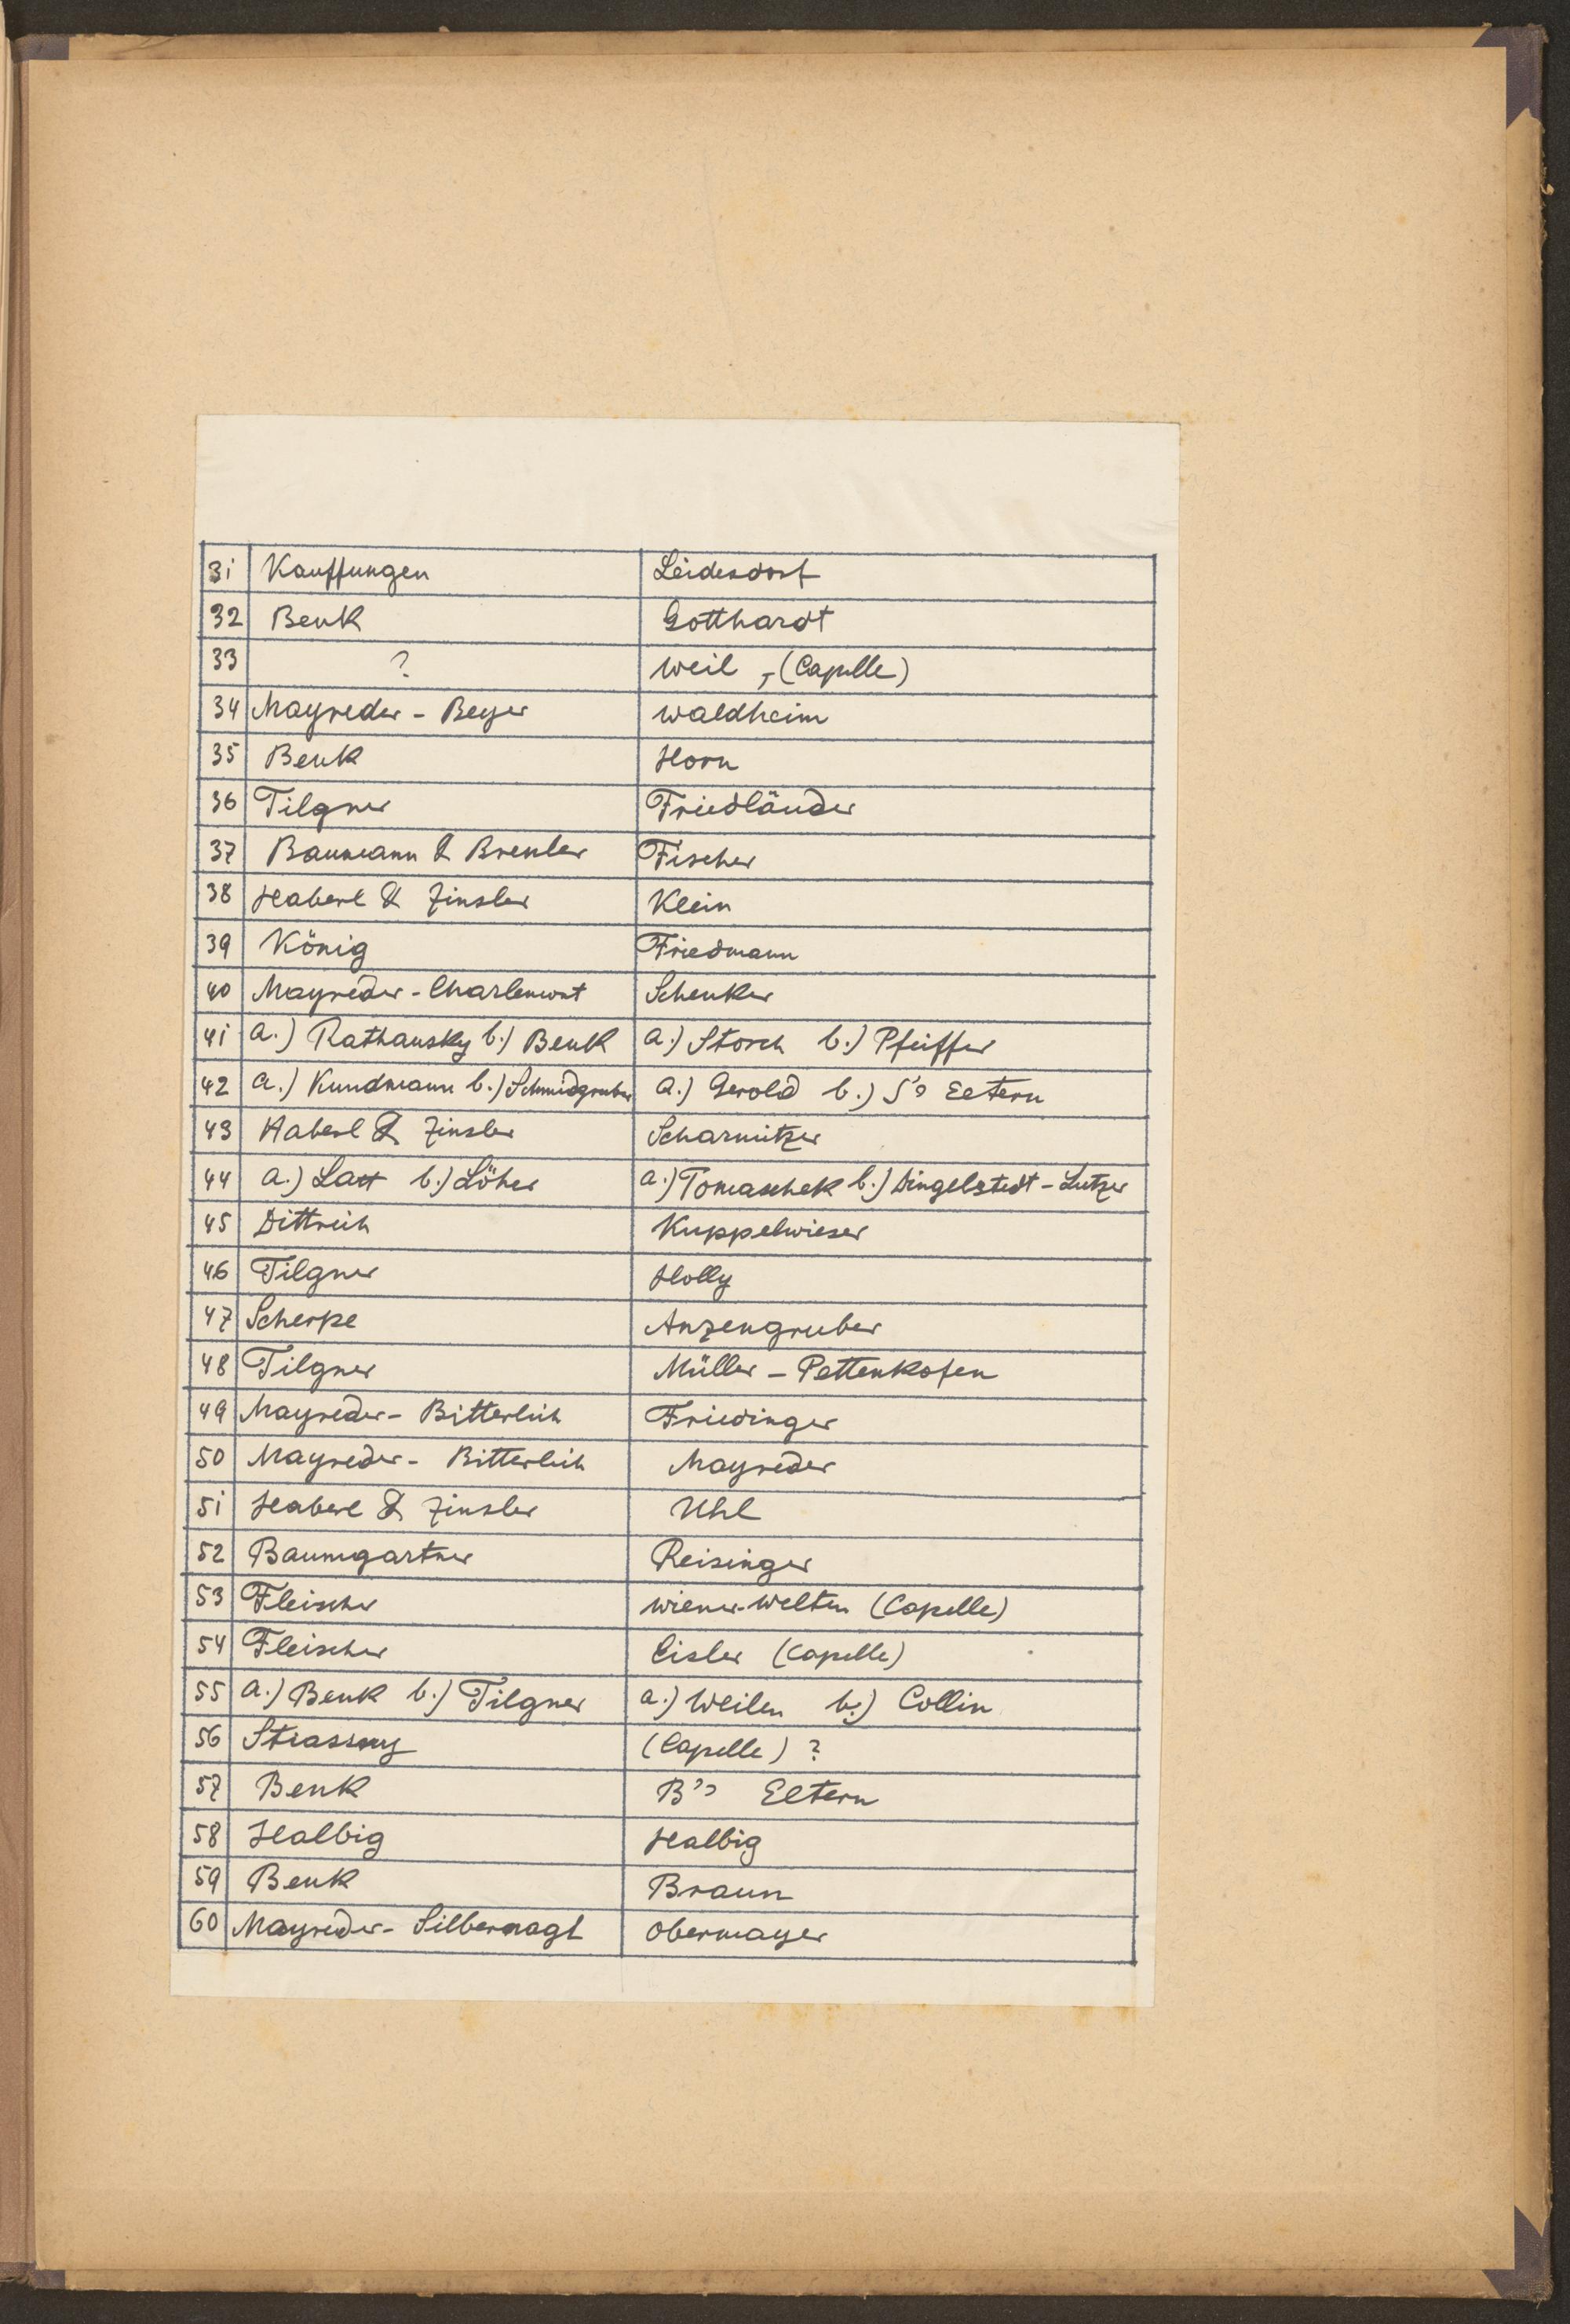 31 Kauffungen Leidesdorf
32 Benk Gotthardt
33 ? Weil, (Capelle)
34 Mayreder - Beyer Waldheim
35 Benk Horn
36 Tilgner Friedländer
37 Baumann & Bressler Fischer
38 Haberl & Zinsler Klein
39 König Friedmann
40 Mayreder - Charlemont Schenker
41 a.) Rathausky b.) Benk a.) Storch b.) Pfeiffer
42 a.) Kundmann b.) Schmidgruber a.) Gerold b.) S's Eltern
43 Haberl & Zinsler Scharmitzer
44 a.) Latt b.) Löher a.) Tomaschek b.) Dingelstedt - Lutzer
45 Dittrich Kuppelwieser
46 Tilgner Holly
47 Scherpe Anzengruber
48 Tilgner Müller - Pettenkofen
49 Mayreder - Bitterlich Friedinger
50 Mayreder - Bitterlich Mayreder
51 Haberl & Zinsler Uhl
52 Baumgartner Reisinger
53 Fleischer Wiener-Welten (Capelle)
54 Fleischer Eisler (Capelle)
55 a.) Benk b.) Tilgner a.) Weilen b.) Collin
56 Strassny (Capelle) ?
57 Benk B's Eltern
58 Halbig Halbig
59 Benk Braun
60 Mayreder - Silbernagl Obermayer